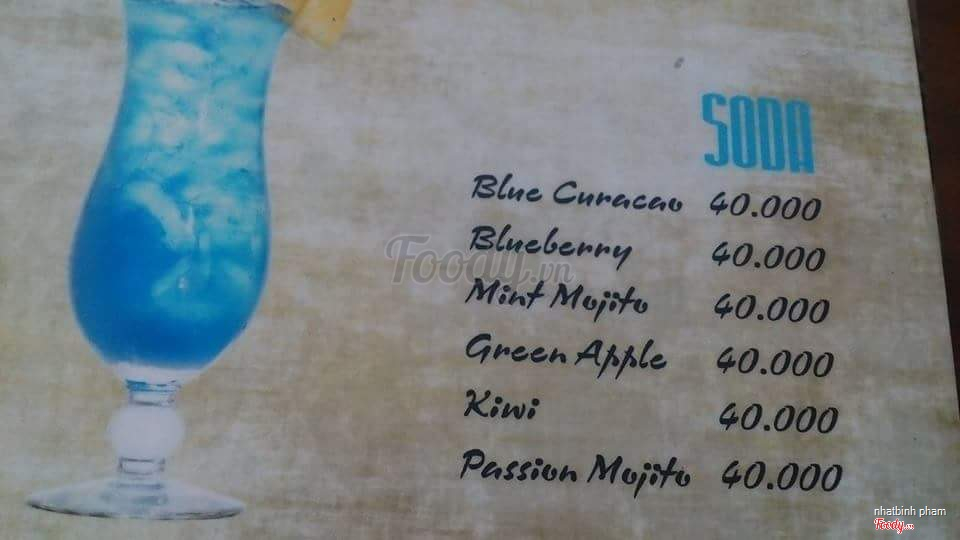 SODA
Blue Curacao 40.000
Blueberry 40.000
Mint Mojito 40.000
Green Apple 40.000
Kiwi 40.000
Passion Mojito 40.000
Foody.vn
nhatbinh pham
Foody.vn